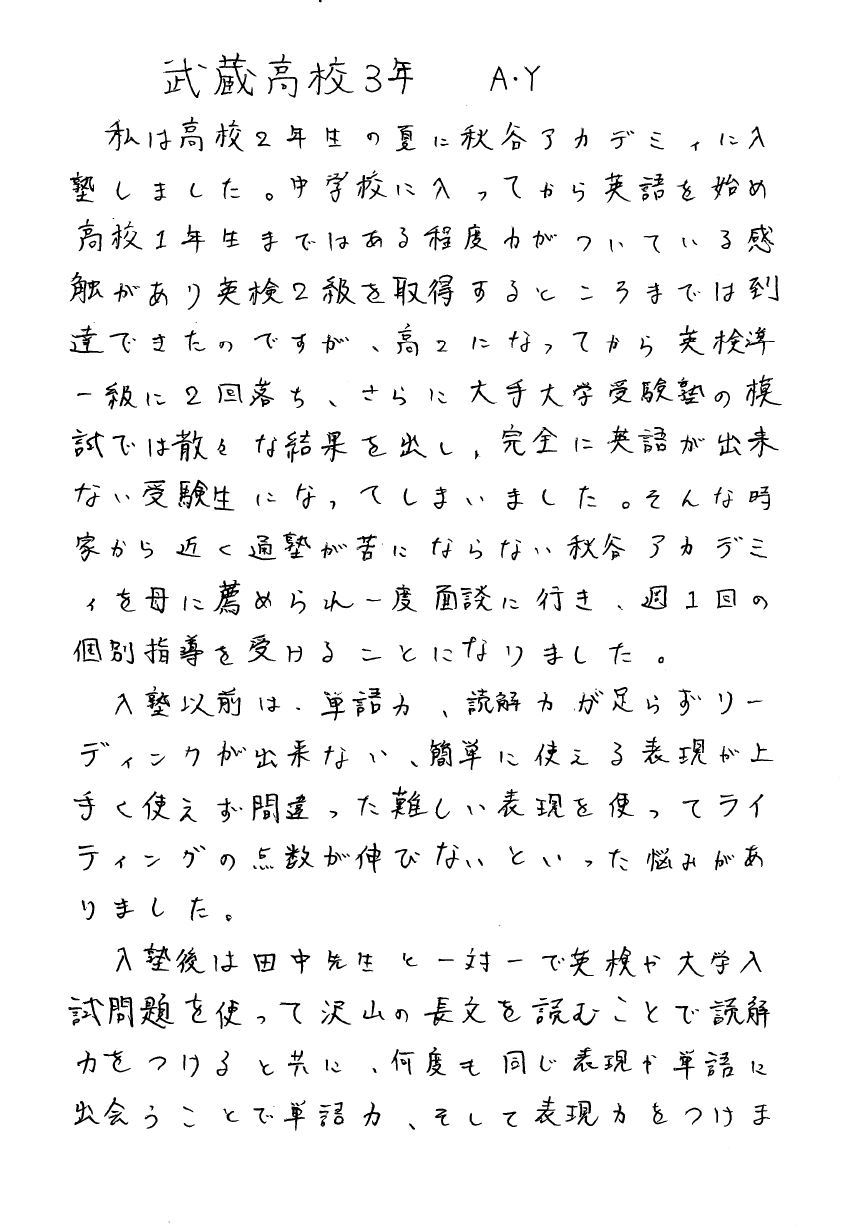 武蔵高校3年 A・Y
私は高校2年生の夏に秋谷アカデミィに入
塾しました。中学校に入ってから英語を始め
高校1年生まではある程度力がついている感
触があり英検2級を取得するところまでは到
達できたのですが、高2になってから英検準
一級に2回落ち、さらに大手大学受験塾の模
試では散々な結果を出し、完全に英語が出来
ない受験生になってしまいました。そんな時
家から近く通塾が苦にならない秋谷アカデミ
ィを母に薦められ一度面談に行き、週1回の
個別指導を受けることになりました。
入塾以前は、単語力、読解力が足らずリー
ディングが出来ない、簡単に使える表現が上
手く使えず間違った難しい表現を使ってライ
ティングの点数が伸びないといった悩みがあ
りました。
入塾後は田中先生と一対一で英検や大学入
試問題を使って沢山の長文を読むことで読解
力をつけると共に、何度も同じ表現や単語に
出会うことで単語力、そして表現力をつけま